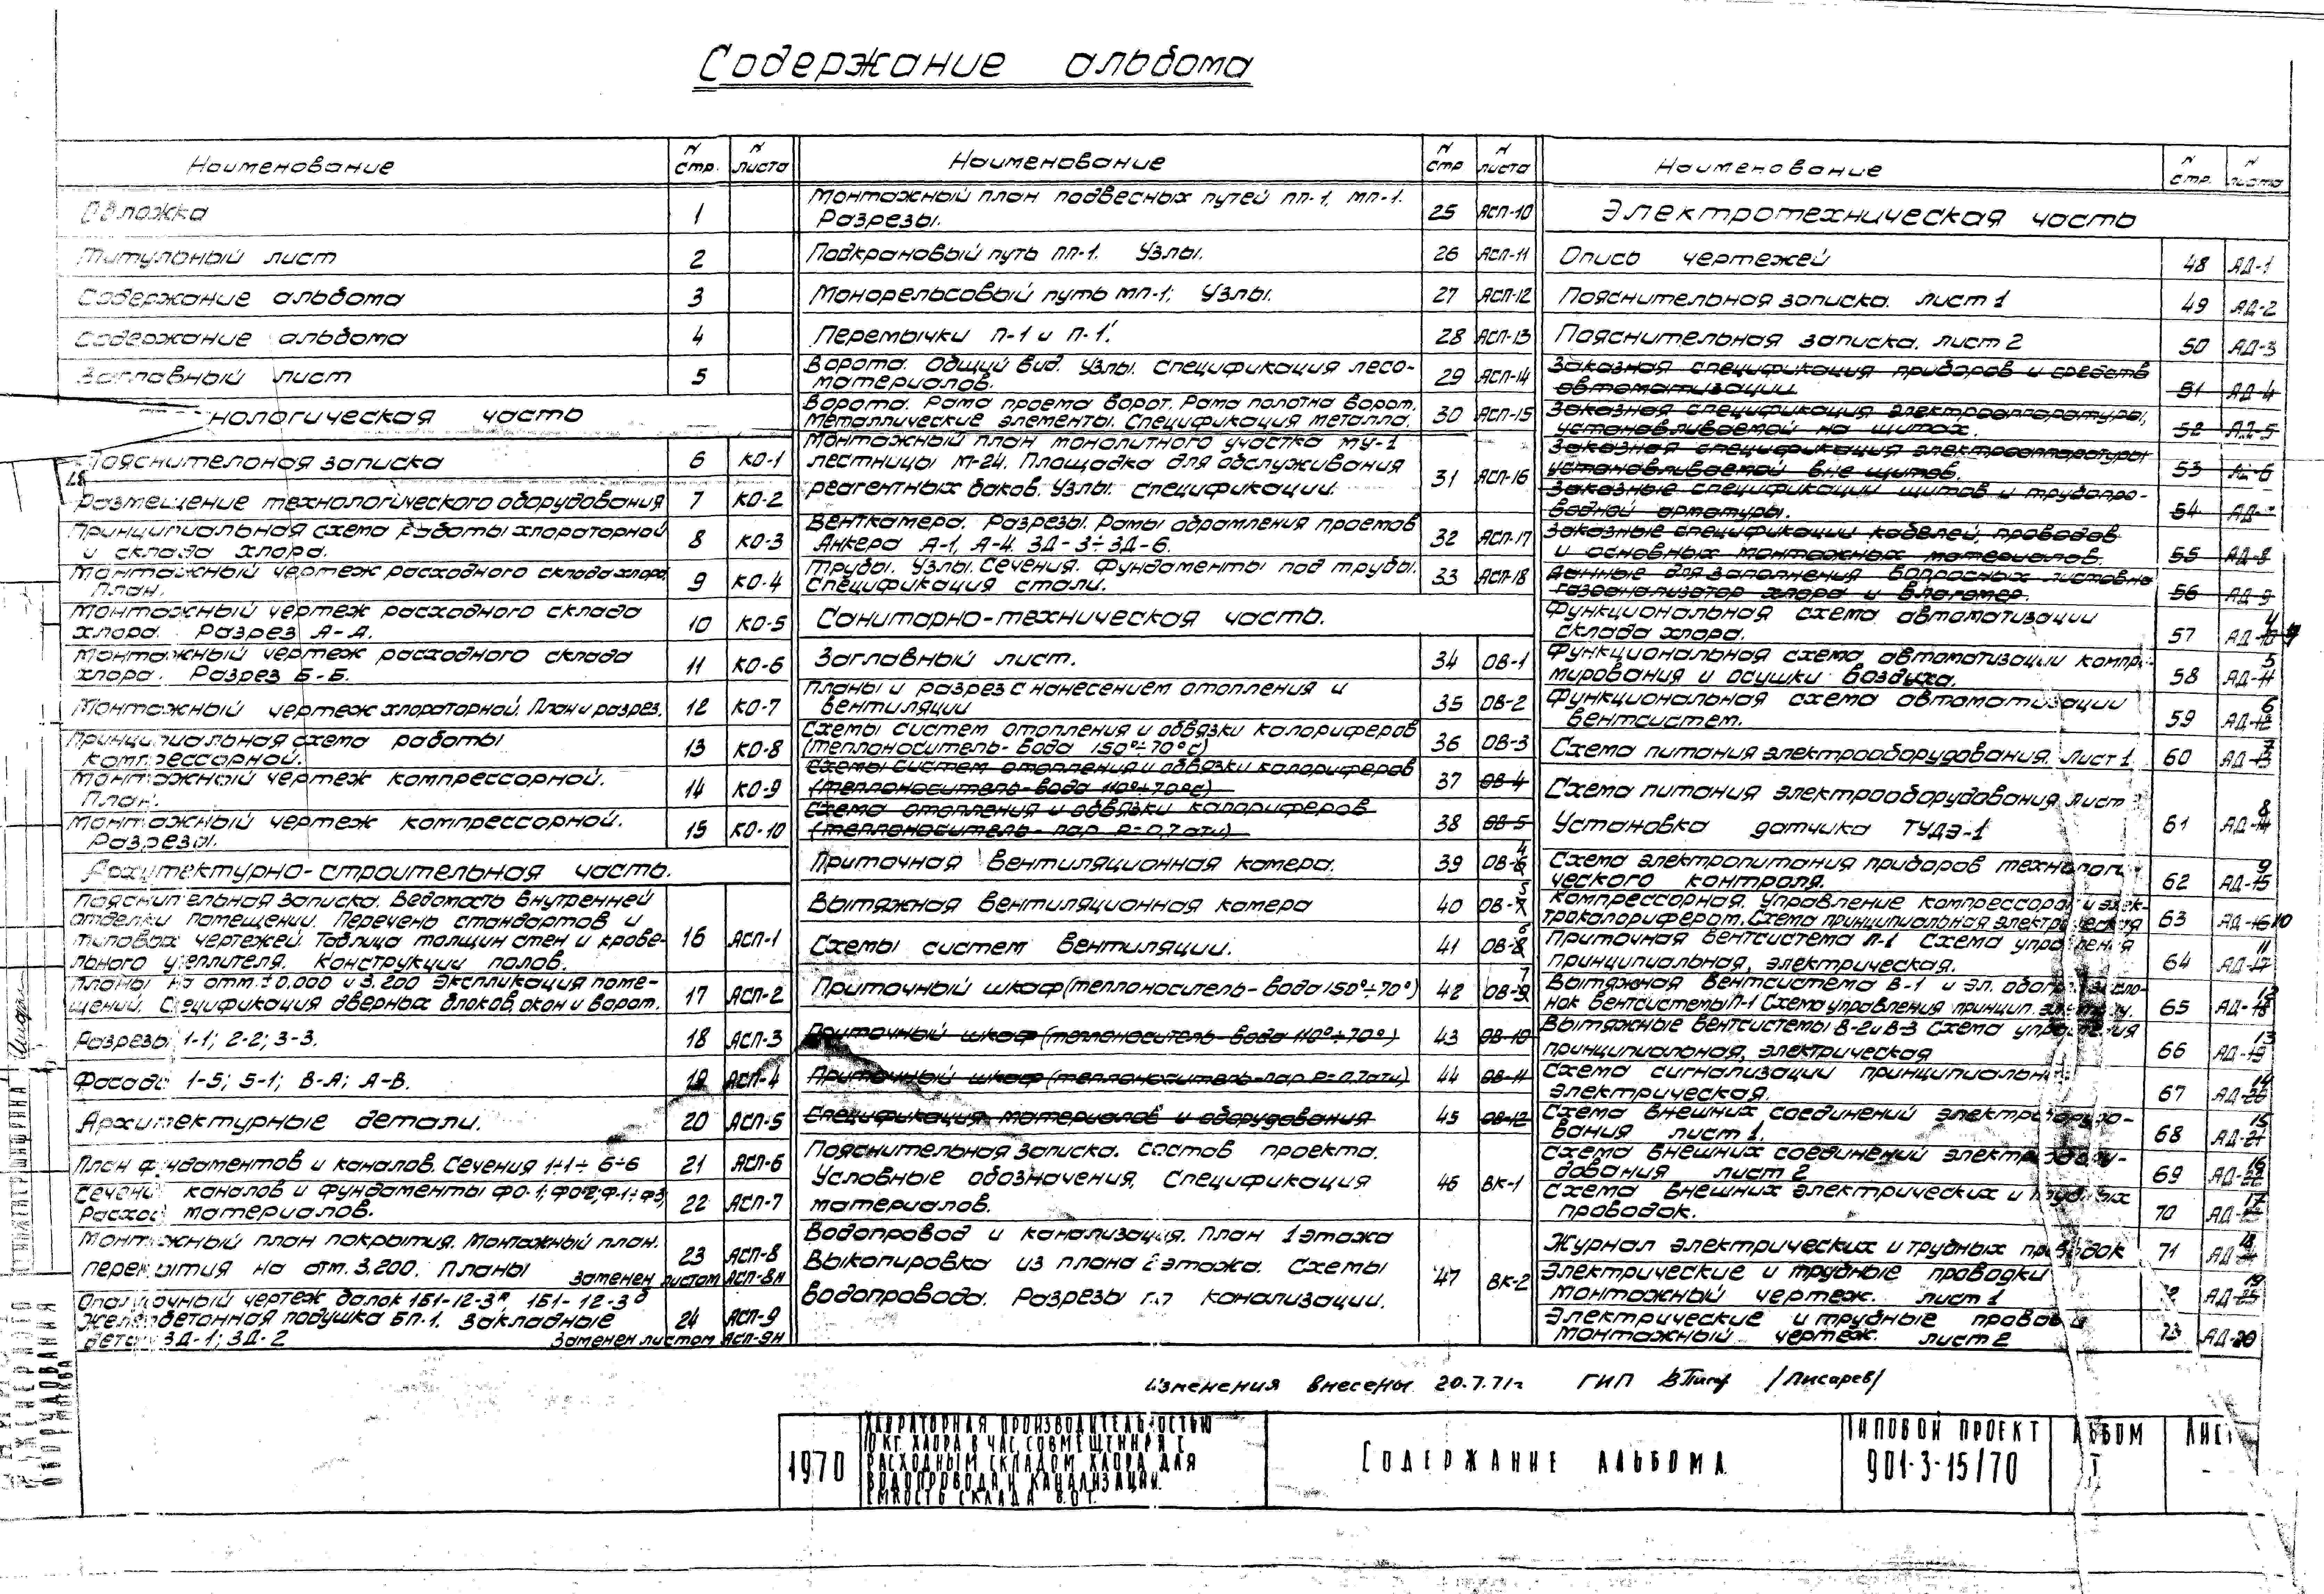 Содержание альбома
Наименование
N стр.
N листа
Обложка 1
Титульный лист 2
Содержание альбома 3
Содержание альбома 4
Заглавный лист 5
нологическая часть
Пояснительная записка 6 КО-1
Размещение технологического оборудования 7 КО-2
Принципиальная схема работы хлораторной
и склада хлора. 8 КО-3
Монтажный чертеж расходного склада хлора.
План. 9 КО-4
Монтажный чертеж расходного склада
хлора. Разрез А-А. 10 КО-5
Монтажный чертеж расходного склада
хлора. Разрез Б-Б. 11 КО-6
Монтажный чертеж хлораторной. План и разрез. 12 КО-7
Принципиальная схема работы
компрессорной. 13 КО-8
Монтажный чертеж компрессорной.
План. 14 КО-9
Монтажный чертеж компрессорной.
Разрезы. 15 КО-10
Архитектурно-строительная часть.
Пояснительная записка. Ведомость внутренней
отделки помещений. Перечень стандартов и
типовых чертежей. Таблица толщин стен и крове-
льного утеплителя. Конструкции полов. 16 АСП-1
Планы на отм. ±0.000 и 3.200 Экспликация поме-
щений. Спецификация дверных блоков, окон и ворот. 17 АСП-2
Разрезы 1-1; 2-2; 3-3. 18 АСП-3
Фасады 1-5; 5-1; В-А; А-В. 19 АСП-4
Архитектурные детали. 20 АСП-5
План фундаментов и каналов. Сечения 1÷1 ÷ 6÷6 21 АСП-6
Сечения каналов и фундаменты ФО-1; ФО-2; Ф-1÷Ф3;
Расход материалов. 22 АСП-7
Монтажный план покрытия. Монтажный план.
перекрытия на отм. 3.200. Планы 23 АСП-8
Заменен листом АСП-8Н
Опалубочный чертеж балок 1Б1-12-3а, 1Б1-12-3б
Железобетонная подушка БП-1. Закладные 24 АСП-9
детали ЗД-1; ЗД-2 Заменен листом АСП-9Н
Наименование
N стр
N листа
Монтажный план подвесных путей пп-1, мп-1.
Разрезы. 25 АСП-10
Подкрановый путь пп-1. Узлы. 26 АСП-11
Монорельсовый путь мп-1; Узлы. 27 АСП-12
Перемычки п-1 и п-1'. 28 АСП-13
Ворота. Общий вид. Узлы. Спецификация лесо-
материалов. 29 АСП-14
Ворота. Рама проема ворот. Рама полотна ворот.
Металлические элементы. Спецификация металла. 30 АСП-15
Монтажный план монолитного участка му-1
лестницы М-24. Площадка для обслуживания
реагентных баков. Узлы. Спецификации. 31 АСП-16
Венткамера. Разрезы. Рамы обрамления проемов
Анкера А-1, А-4. ЗД-3÷ЗД-6. 32 АСП-17
Трубы. Узлы. Сечения. Фундаменты под трубы.
Спецификация стали. 33 АСП-18
Санитарно-техническая часть.
Заглавный лист. 34 ОВ-1
Планы и разрез с нанесением отопления и
вентиляции 35 ОВ-2
Схемы систем отопления и обвязки калориферов
(теплоноситель-вода 150°÷70°с) 36 ОВ-3
Схемы систем отопления и обвязки калориферов
(теплоноситель-вода 110°÷70°с) 37 ОВ-4
Схема отопления и обвязки калориферов
(теплоноситель-пар Р=0,7 ати) 38 ОВ-5
Приточная вентиляционная камера. 39 ОВ-6 4
Вытяжная вентиляционная камера 40 ОВ-7 5
Схемы систем вентиляции. 41 ОВ-8 6
Приточный шкаф (теплоноситель-вода 150°÷70°) 42 ОВ-9 7
Приточный шкаф (теплоноситель-вода 110°÷70°) 43 ОВ-10
Приточный шкаф (теплоноситель-пар Р=0,7ати) 44 ОВ-11
Спецификация материалов и оборудования 45 ОВ-12
Пояснительная записка. Состав проекта.
Условные обозначения, Спецификация
материалов. 46 ВК-1
Водопровод и канализация. План 1 этажа
Выкопировка из плана 2 этажа. Схемы
водопровода. Разрезы по канализации. 47 ВК-2
Наименование
N стр.
N листа
Электротехническая часть
Опись чертежей 48 АД-1
Пояснительная записка. лист 1 49 АД-2
Пояснительная записка. лист 2 50 АД-3
Заказная спецификация приборов и средств
автоматизации. 51 АД-4
Заказная спецификация электроаппаратуры,
установливаемой на щитах. 52 АД-5
Заказная спецификация электроаппаратуры
установливаемой вне щитов. 53 АД-6
Заказные спецификации щитов и трубопро-
водной арматуры. 54 АД-7
Заказные спецификации кабелей, проводов
и основных монтажных материалов. 55 АД-8
Данные для заполнения вопросных листов на
газоанализатор хлора и влагомер. 56 АД-9
Функциональная схема автоматизации
склада хлора. 57 АД-10 4
Функциональная схема автоматизации компри-
мирования и осушки воздуха. 58 АД-11 5
Функциональная схема автоматизации
вентсистем. 59 АД-12 6
Схема питания электрооборудования. Лист 1 60 АД-13 7
Схема питания электрооборудования лист 2
Установка датчика ТУДЭ-1 61 АД-14 8
Схема электропитания приборов технологи-
ческого контроля. 62 АД-15 9
Компрессорная. Управление компрессора и элек-
трокалорифером. Схема принципиальная электрическая 63 АД-16 10
Приточная вентсистема П-1 Схема управления
принципиальная, электрическая. 64 АД-17 11
Вытяжная вентсистема В-1 и эл. обогрев засло-
нок вентсистемы П-1 Схема управления принцип. электру. 65 АД-18 12
Вытяжные вентсистемы В-2 и В-3 Схема управления
принципиальная, электрическая 66 АД-19 13
Схема сигнализации принципиальная
электрическая. 67 АД-20 14
Схема внешних соединений электрооборудо-
вания лист 1. 68 АД-21 15
Схема внешних соединений электрооборудо-
дования лист 2 69 АД-22 16
Схема внешних электрических и трубных
проводок. 70 АД-23 17
Журнал электрических и трубных проводок 71 АД-24 18
Электрические и трубные проводки
монтажный чертеж. лист 1 72 АД-25 19
Электрические и трубные проводки
монтажный чертеж. лист 2 73 АД-20
Изменения внесены 20.7.71г ГИП /Писарев/
1970
Хлораторная производительностью
10 кг. хлора в час, совмещенная с
расходным складом хлора для
водопровода и канализации.
Емкость склада 8.0 т.
Содержание альбома
Типовой проект
901-3-15/70
Альбом
I
Лист
-